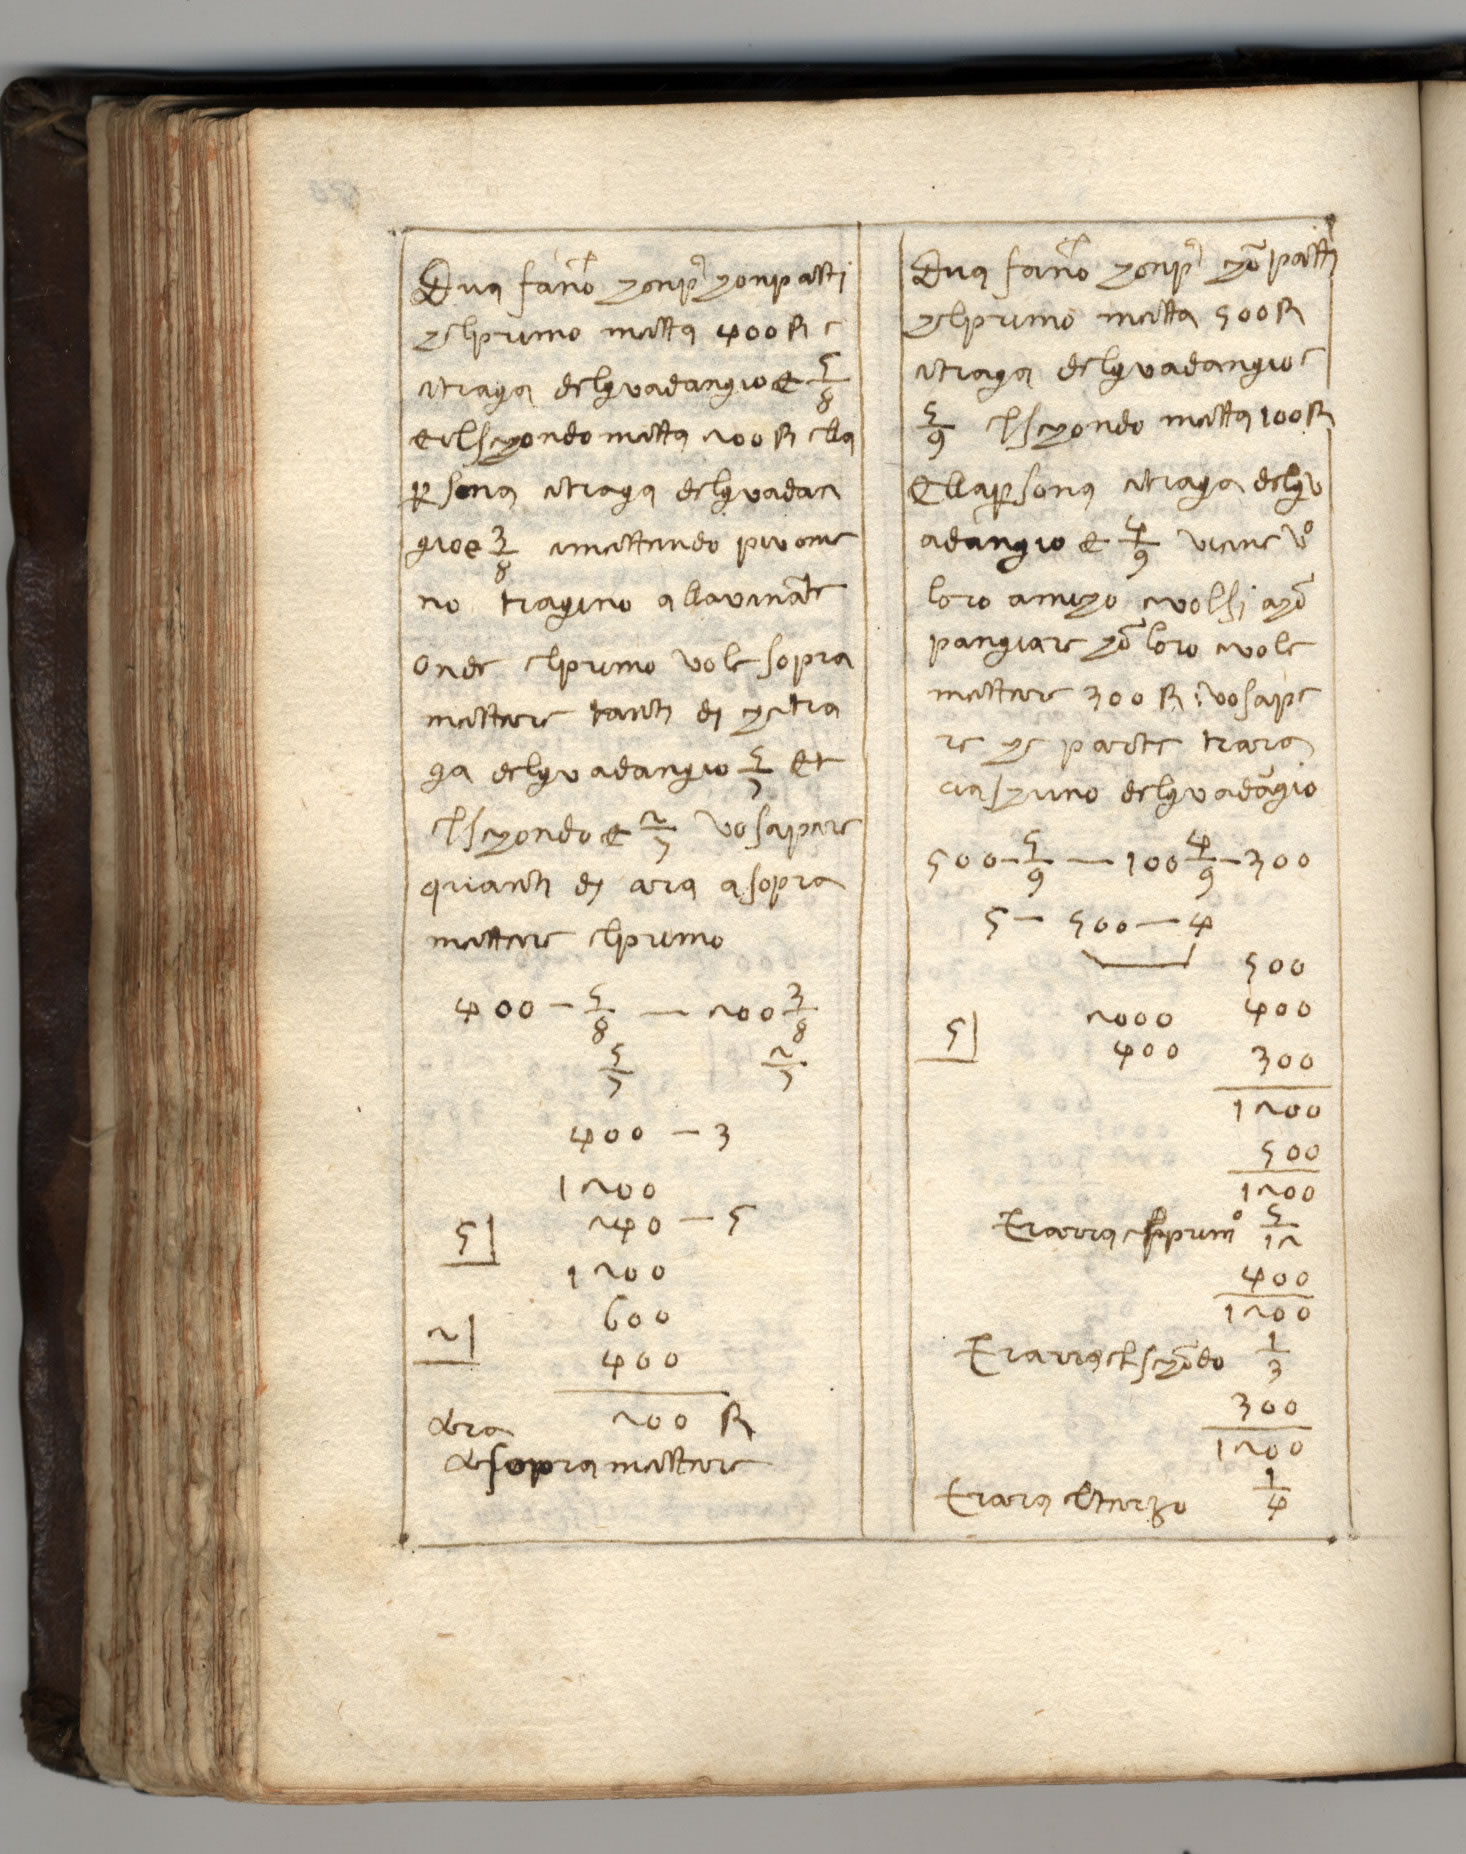 Dua fano conpᵃ conpatti
chelprimo metta 400 R e
etraga delguadangio e 5/8
e elsecondo metta 200 R ella
psona etraga delguadan
gio e 3/8 emettendo piu ome
no tragino allavinãte
onde elprimo vole sopra
mettere tanti dj chetra
ga delguadangio 5/7 et
elsecondo e 2/7 vosapere
quanti dj ara asopra
mettere elprimo
400 — 5/8 — 200 3/8
5/7 2/7
400 — 3
1200
5| 240 — 5
1200
2| 600
400
Ara 200 R
Asopra mettere
Dua fano conpᵃ cõpatti
chelprimo metta 500 R
etraga delguadangio e
5/9 elsecondo metta 100 R
ella psona etraga delgu
adangio e 4/9 viene uº
loro amico evolsi acõ
pangiare cõ loro evole
mettere 300 R: vosape
re che parte trara
ciaschuno delguadãgio
500 — 5/9 — 100 4/9 — 300
5 — 500 — 4
500
2000 400
5| 400 300
1200
500
1200
Trarra elprimº 5/12
400
1200
Trarra elsecõdo 1/3
300
1200
Trara elterzo 1/4